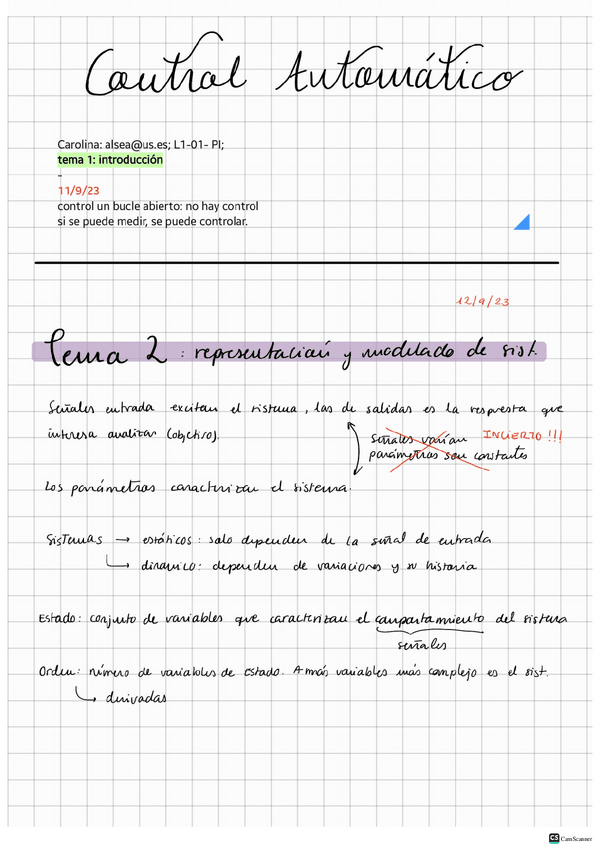 Control Automático
Carolina: alsea@us.es; L1-01- PI;
tema 1: introducción
-
11/9/23
control un bucle abierto: no hay control
si se puede medir, se puede controlar.
12/9/23
Tema 2 : representación y modelado de sist.
Señales entrada excitan el sistema, las de salidas es la respuesta que
interesa analizar (objetivo).
señales varían INCIERTO !!!
parámetros son constantes
Los parámetros caracterizan el sistema.
Sistemas → estáticos: solo dependen de la señal de entrada
↳ dinámico: dependen de variaciones y su historia
Estado: conjunto de variables que caracterizan el comportamiento del sistema
señales
Orden: número de variables de estado. A más variables más complejo es el sist.
↳ derivadas
CS CamScanner